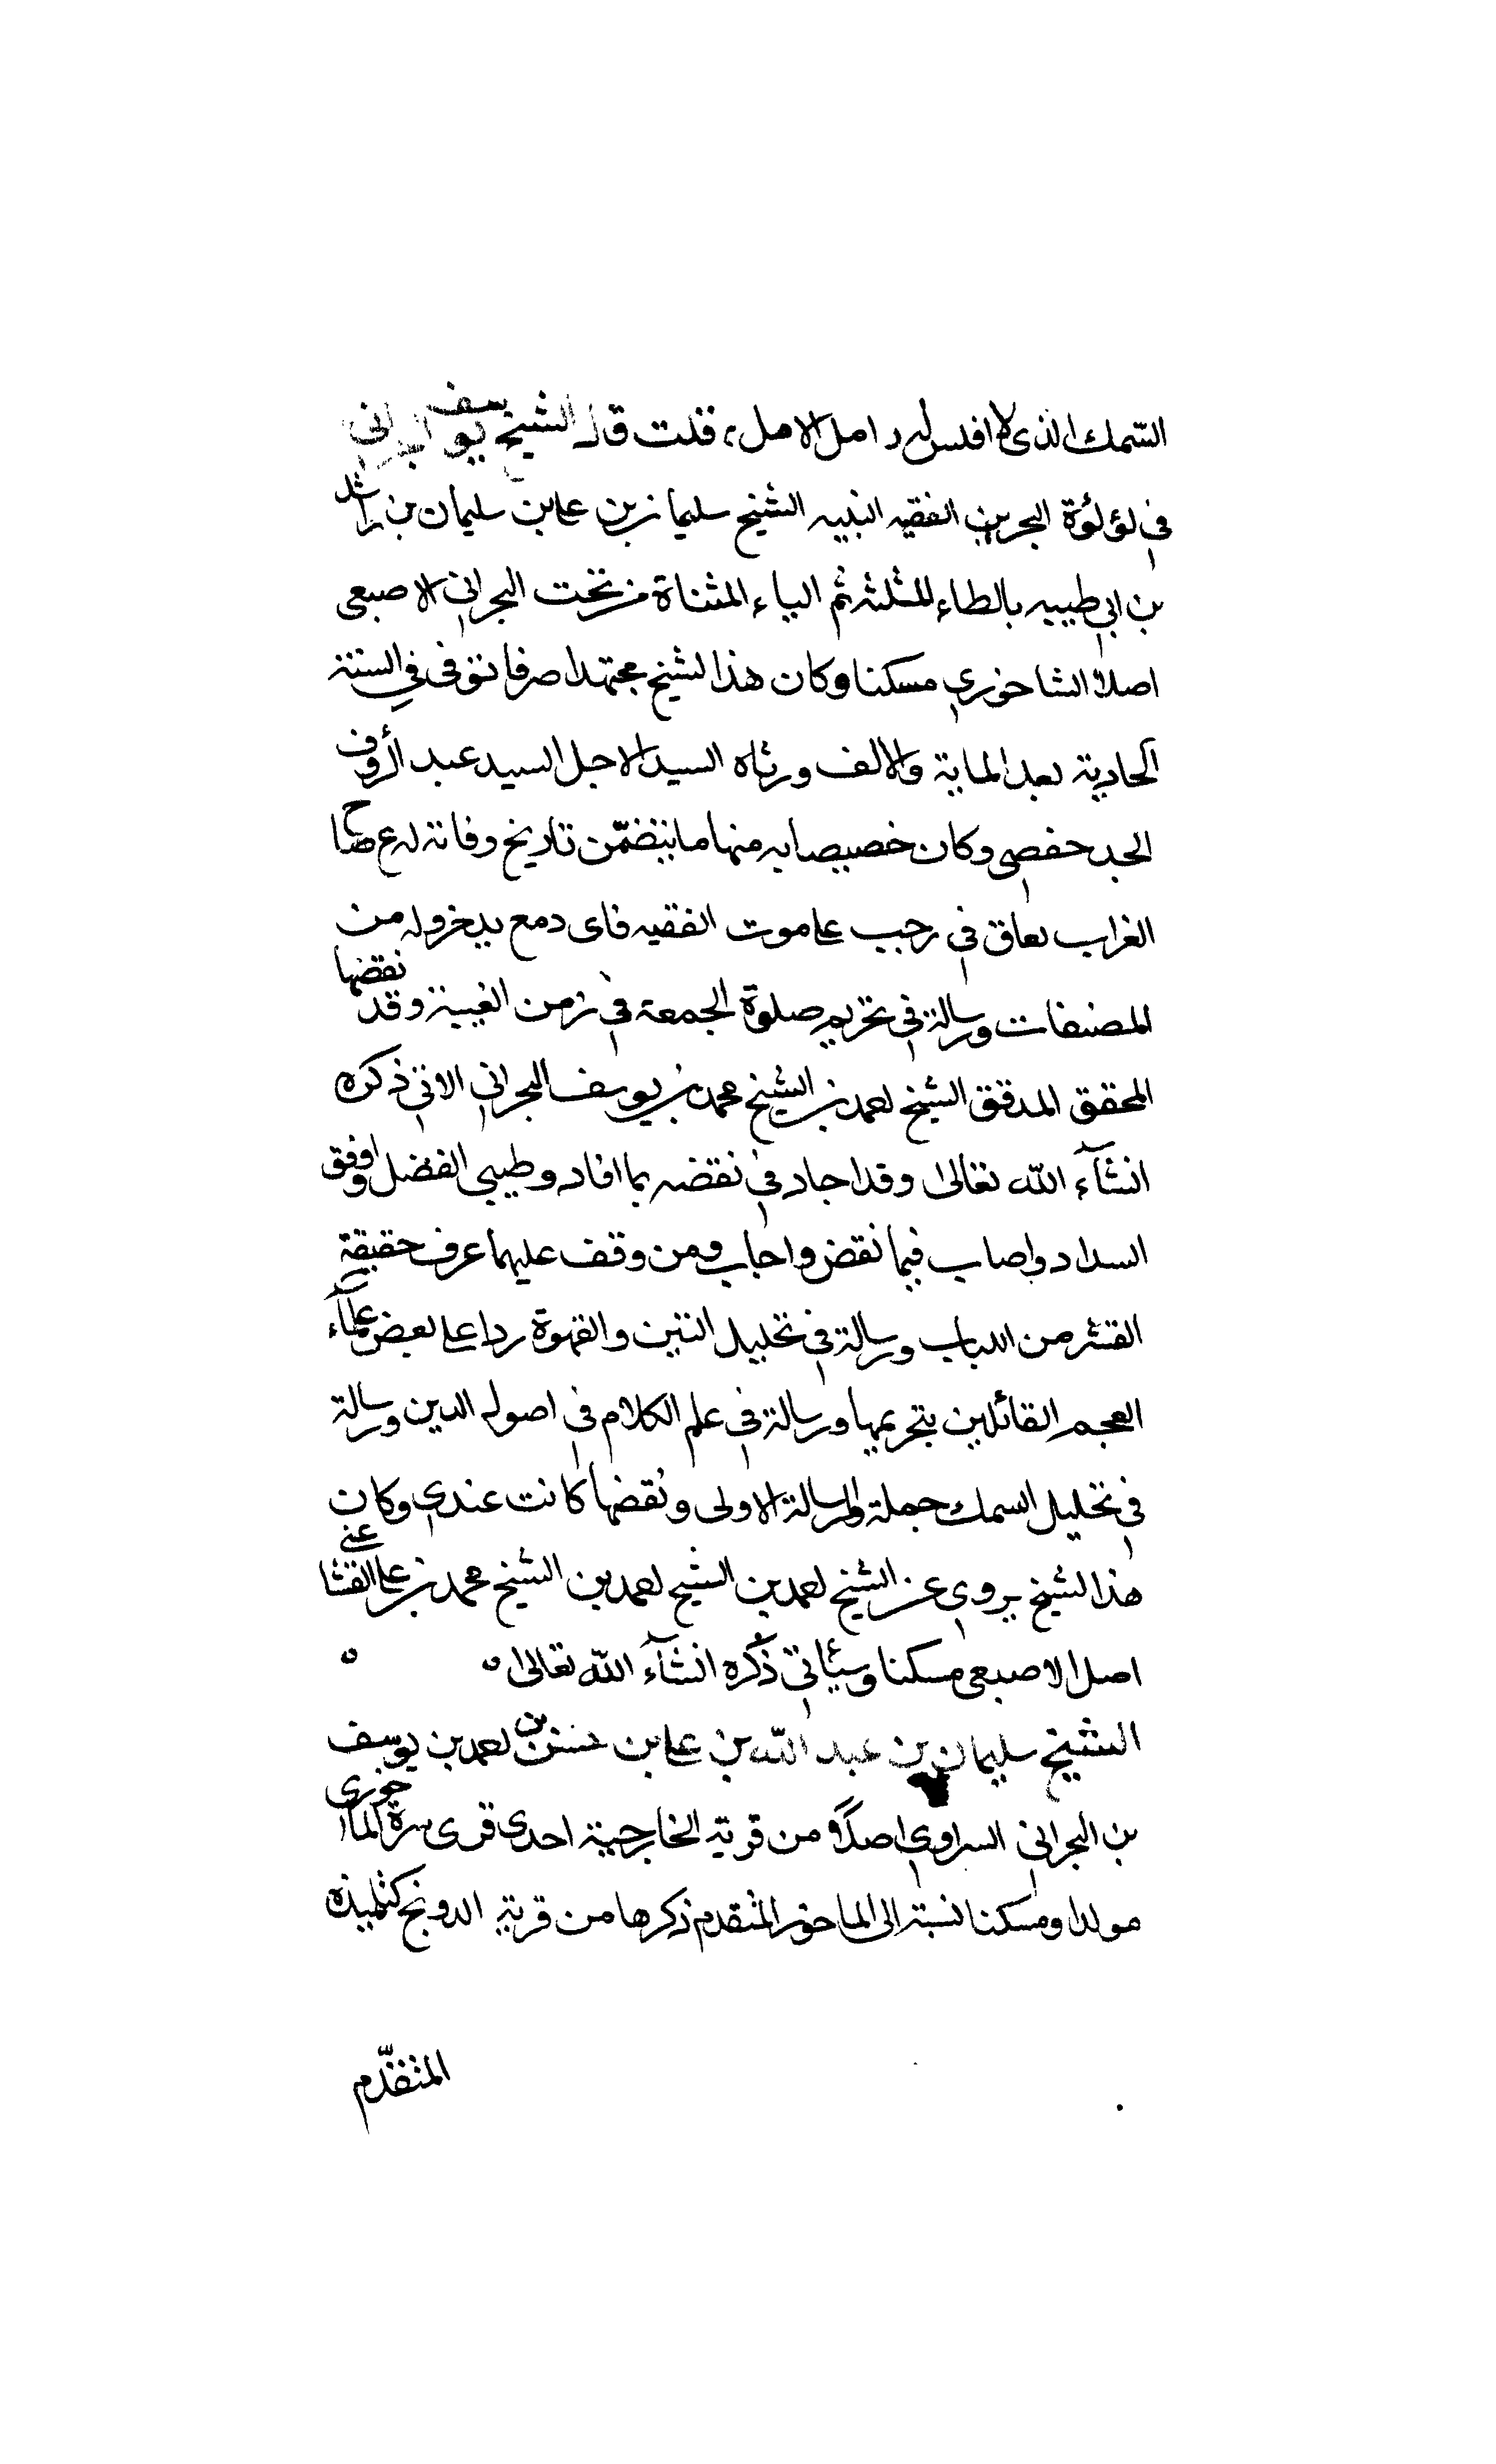 السّمك الذى لا فلس له امل الامل، قلت قال الشيخ يوسف
فى لؤلؤة البحرين الفقيه النبيه الشيخ سليمان بن على بن سليمان بن راشد
بن ابى طيبيه بالطاء المثلثه ثم الياء المثناة من تحت البحرانى الاصبعى
اصلا الشاخورى مسكنا وكان هذا الشيخ مجتهدا صرفا توفى فى السنة
الحادية بعد الماية والالف ورثاه السيد الاجل السيد عبد الرؤف
الجد حفصى وكان خصيصا به منها ما يتضمّن تاريخ وفاته له ع صاح
الغراب بغاق فى رجب على موت الفقيه فاى دمع يدخر وله من
المصنفات ورسالة فى تحريم صلوة الجمعة فى زمن الغيبة وقد نقضها
المحقق المدقق الشيخ احمد بن الشيخ محمد بن يوسف البحرانى الاتى ذكره
انشآء الله تعالى وقد اجاد فى نقضه بما افاد وطبق الفضل ووافق
السداد واصاب فيما نقض واجاب ومن وقف عليهما عرف حقيقة
القشر من اللباب ورسالة فى تحليل التتن والقهوة ردا على بعض علمآء
العجم القائلين بتحريمها ورسالة فى علم الكلام فى اصول الدين ورسالة
فى تحليل السمك جملة والرسالة الاولى ونقضها كانت عندى وكان
هذا الشيخ يروى عن الشيخ احمد بن الشيخ محمد بن على القشاعى
اصلا الاصبعى مسكنا وسيأتى ذكره انشآء الله تعالى ٥ ٥
الشيخ سليمان بن عبد الله بن على بن حسن بن احمد بن يوسف
بن البحرانى السراوى اصلا ومن قرية الخارجية احدى قرى سرة الماحوزى
مولدا ومسكنا نسبة الى الماحوز المتقدم ذكرها من قرية الدونج كتلميذه
المتقدّم